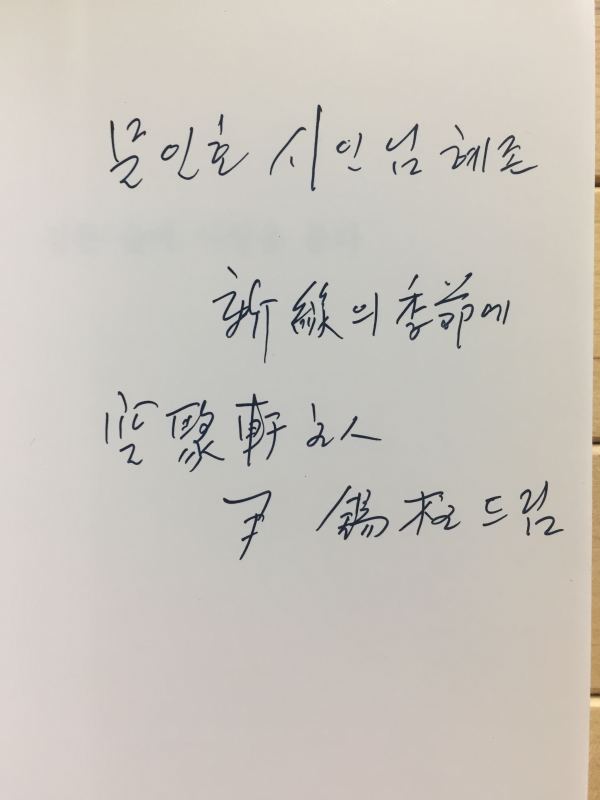 문인호 시인님 혜존
新綠의 季節에
空聚軒主人
尹 錫柱 드림